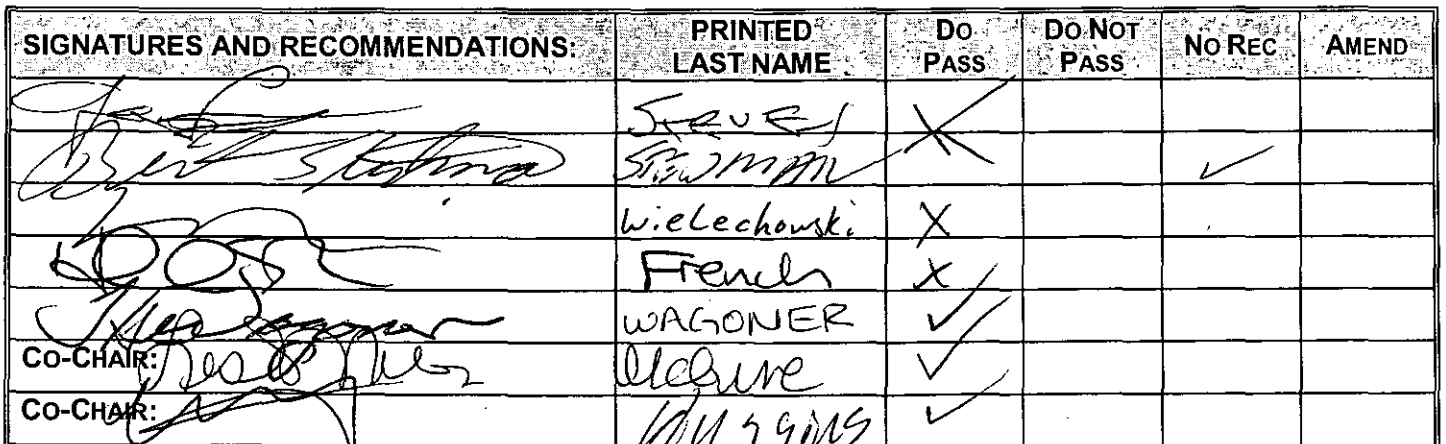 SIGNATURES AND RECOMMENDATIONS: PRINTED LAST NAME DO PASS DO NOT PASS NO REC AMEND
Stevens X
Bert Stedman STEDMAN ✓
Wielechowski X
French X
WAGONER ✓
CO-CHAIR: McGuire ✓
CO-CHAIR: Huggins ✓